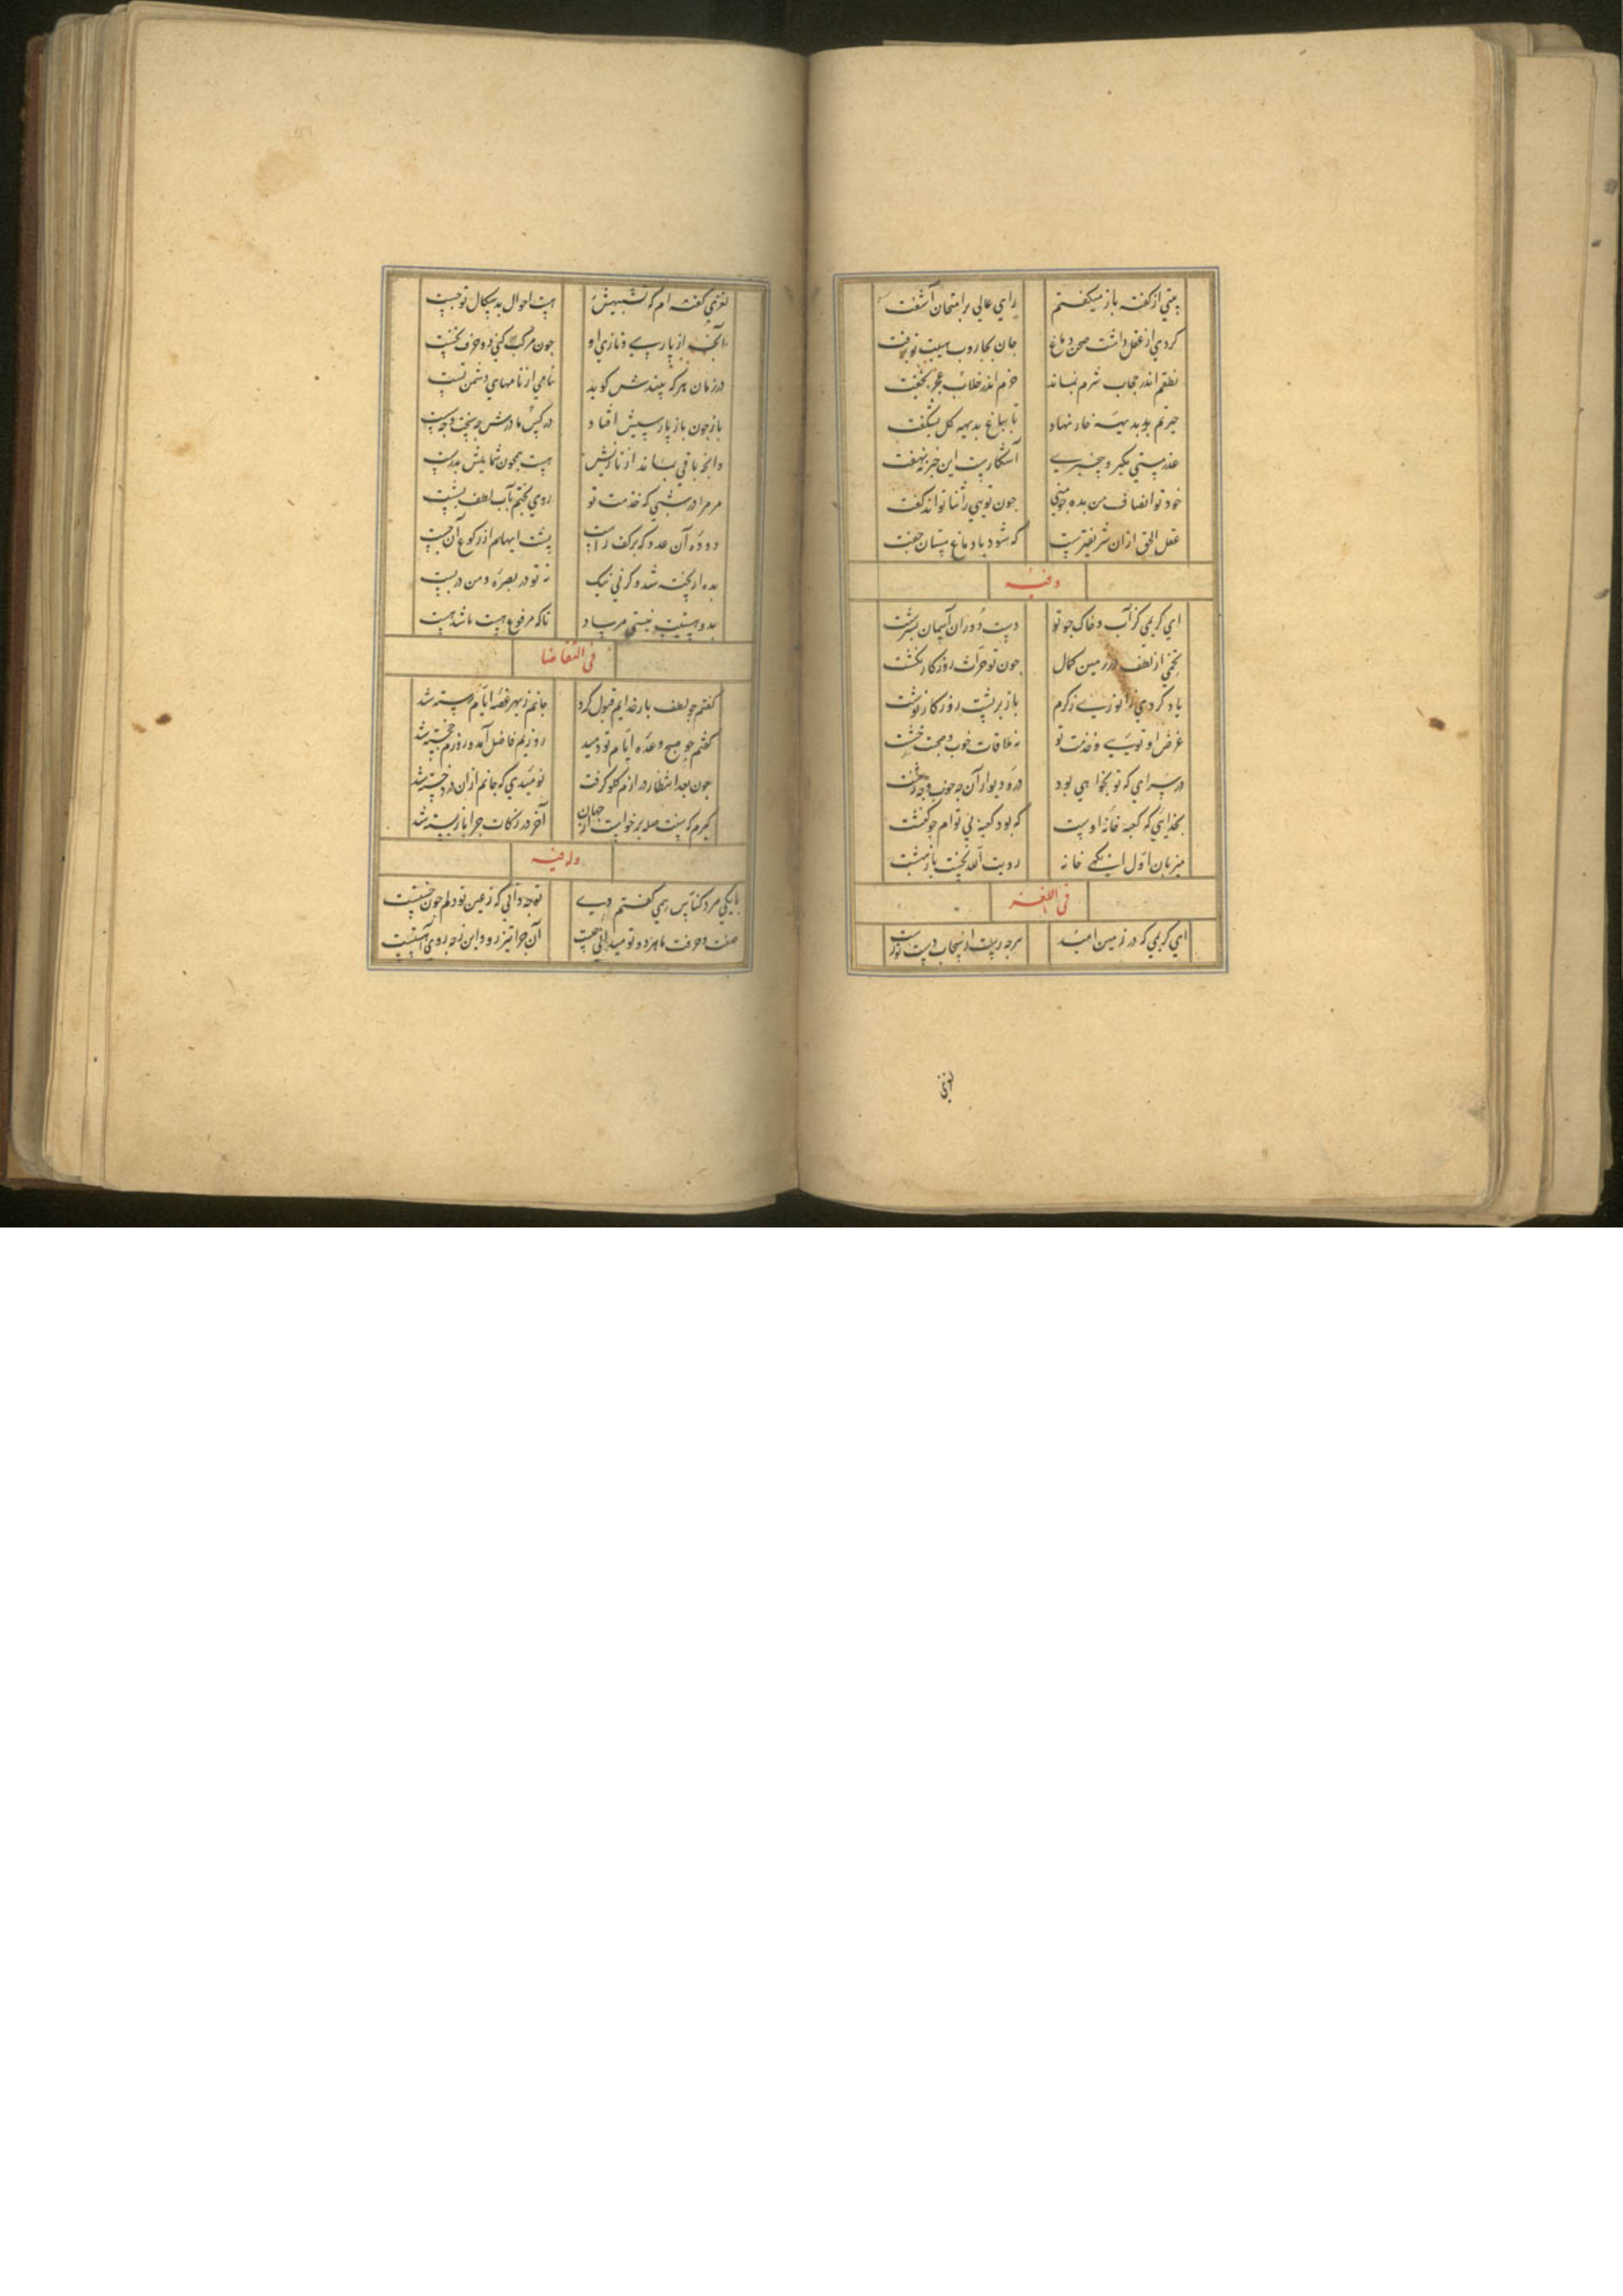 بیتی از گفته باز میگفتم رای عالی بر امتحان آشفت
کردی از عقل داشت صحن دماغ جان بجاروب هیبت تو برفت
نطقم اندر حجاب شرم بماند خرم اندر خلاب عجز بخفت
حیرتم بر بدیهه خار نهاد تا بباغ بدیهه گل نشکفت
عذر مستی مگیر و بیخبری آشکارست این خبر نه نهفت
خود تو انصاف من بده چو منی چون تویی را ثنا تواند گفت
عقل الحق از ان شریفترست که شود با دماغ مستان جفت
وفیه
ای کریمی کز آب و خاک چو تو دست دوران آسمان نسرشت
تخمی از لطف در زمین کمال چون تو حراث روزگار نکشت
یاد کردی ز انوری ز کرم باز بر پشت روزگار نوشت
غرض او تویی و خدمت تو نه ملاقات خوب و صحبت زشت
در سرای که تو بخواهی بود در و دیوار آن چه خوب و چه زشت
بخدایی که کعبه خانه اوست که بود کعبه بی توام چو کنشت
میزبان اول اینکه خانه رویت آمد نخست باز بهشت
فی اللغز
ای کریمی که در زمین امید هرچه رست از سحاب دست تو رست
لغزی
لغزی گفته ام که تشبیهش هست احوال بدسگال تو چست
آنچه از پارسی و تازی او چون مرکب کنی دو حرف نخست
در زمان هر که بیندش گوید نامی از نامهای دشمن تست
باز چون باز پارسیش افتاد در کیش مادرش چه سخت و چه سست
وانچه باقی بماند از تازیش هست همچون شمایلش بدرست
مر مرا در شبی که خدمت تو روی بختم بآب لطف بشست
دو دوه آن عدد که بر کف راست پشت ابهامم از رکوع آن جست
بده ار پخته شد و گر نی نیک نه تو در بصره و من در بست
بد و هستیت نیستی مرساد تا که مرفوع هست باشد هست
فی التقاضا
گفتم چو لطف بار خدایم قبول کرد جانم ز بهر غصه ایام رسته شد
گفتم چو صبح وعده ایام تو دمید روزیم فاضل آمد و روزم خجسته شد
چون بعد انتظار درازم گلو گرفت نومیدی که جانم از ان درد خسته شد
گیرم که سنت صله برخواست از جهان آخر در زکات چرا باز بسته شد
وله فیه
با یکی مرد کناس همی گفتم دی تو چه دانی که ز غبن تو دلم چون خستست
صفت و حرفت ما هر دو تو میدانی چیست آن چرا تیز رو و این ز چه روی آهستست